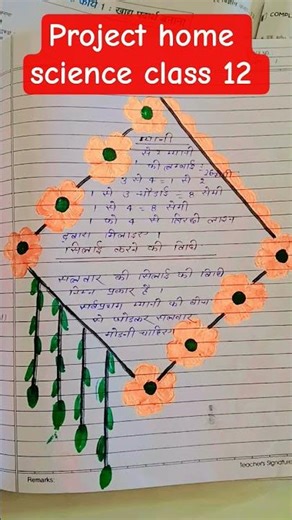 Project home
science class 12
COMPL
म्यानी
से 2 म्यानी
की लम्बाई :
3 से 4 = 1 से 2
1 से 3 चौड़ाई = 8 सेमी
1 से 4 = 8 सेमी
को 4 से तिरछी लाइन
द्वारा मिलाइए।
सिलाई करने की विधि
सलवार की सिलाई की विधि
निम्न प्रकार है
सर्वप्रथम म्यानी की बीच
से जोड़कर सलवार
मोड़नी चाहिए
Remarks:
Teacher's Signature